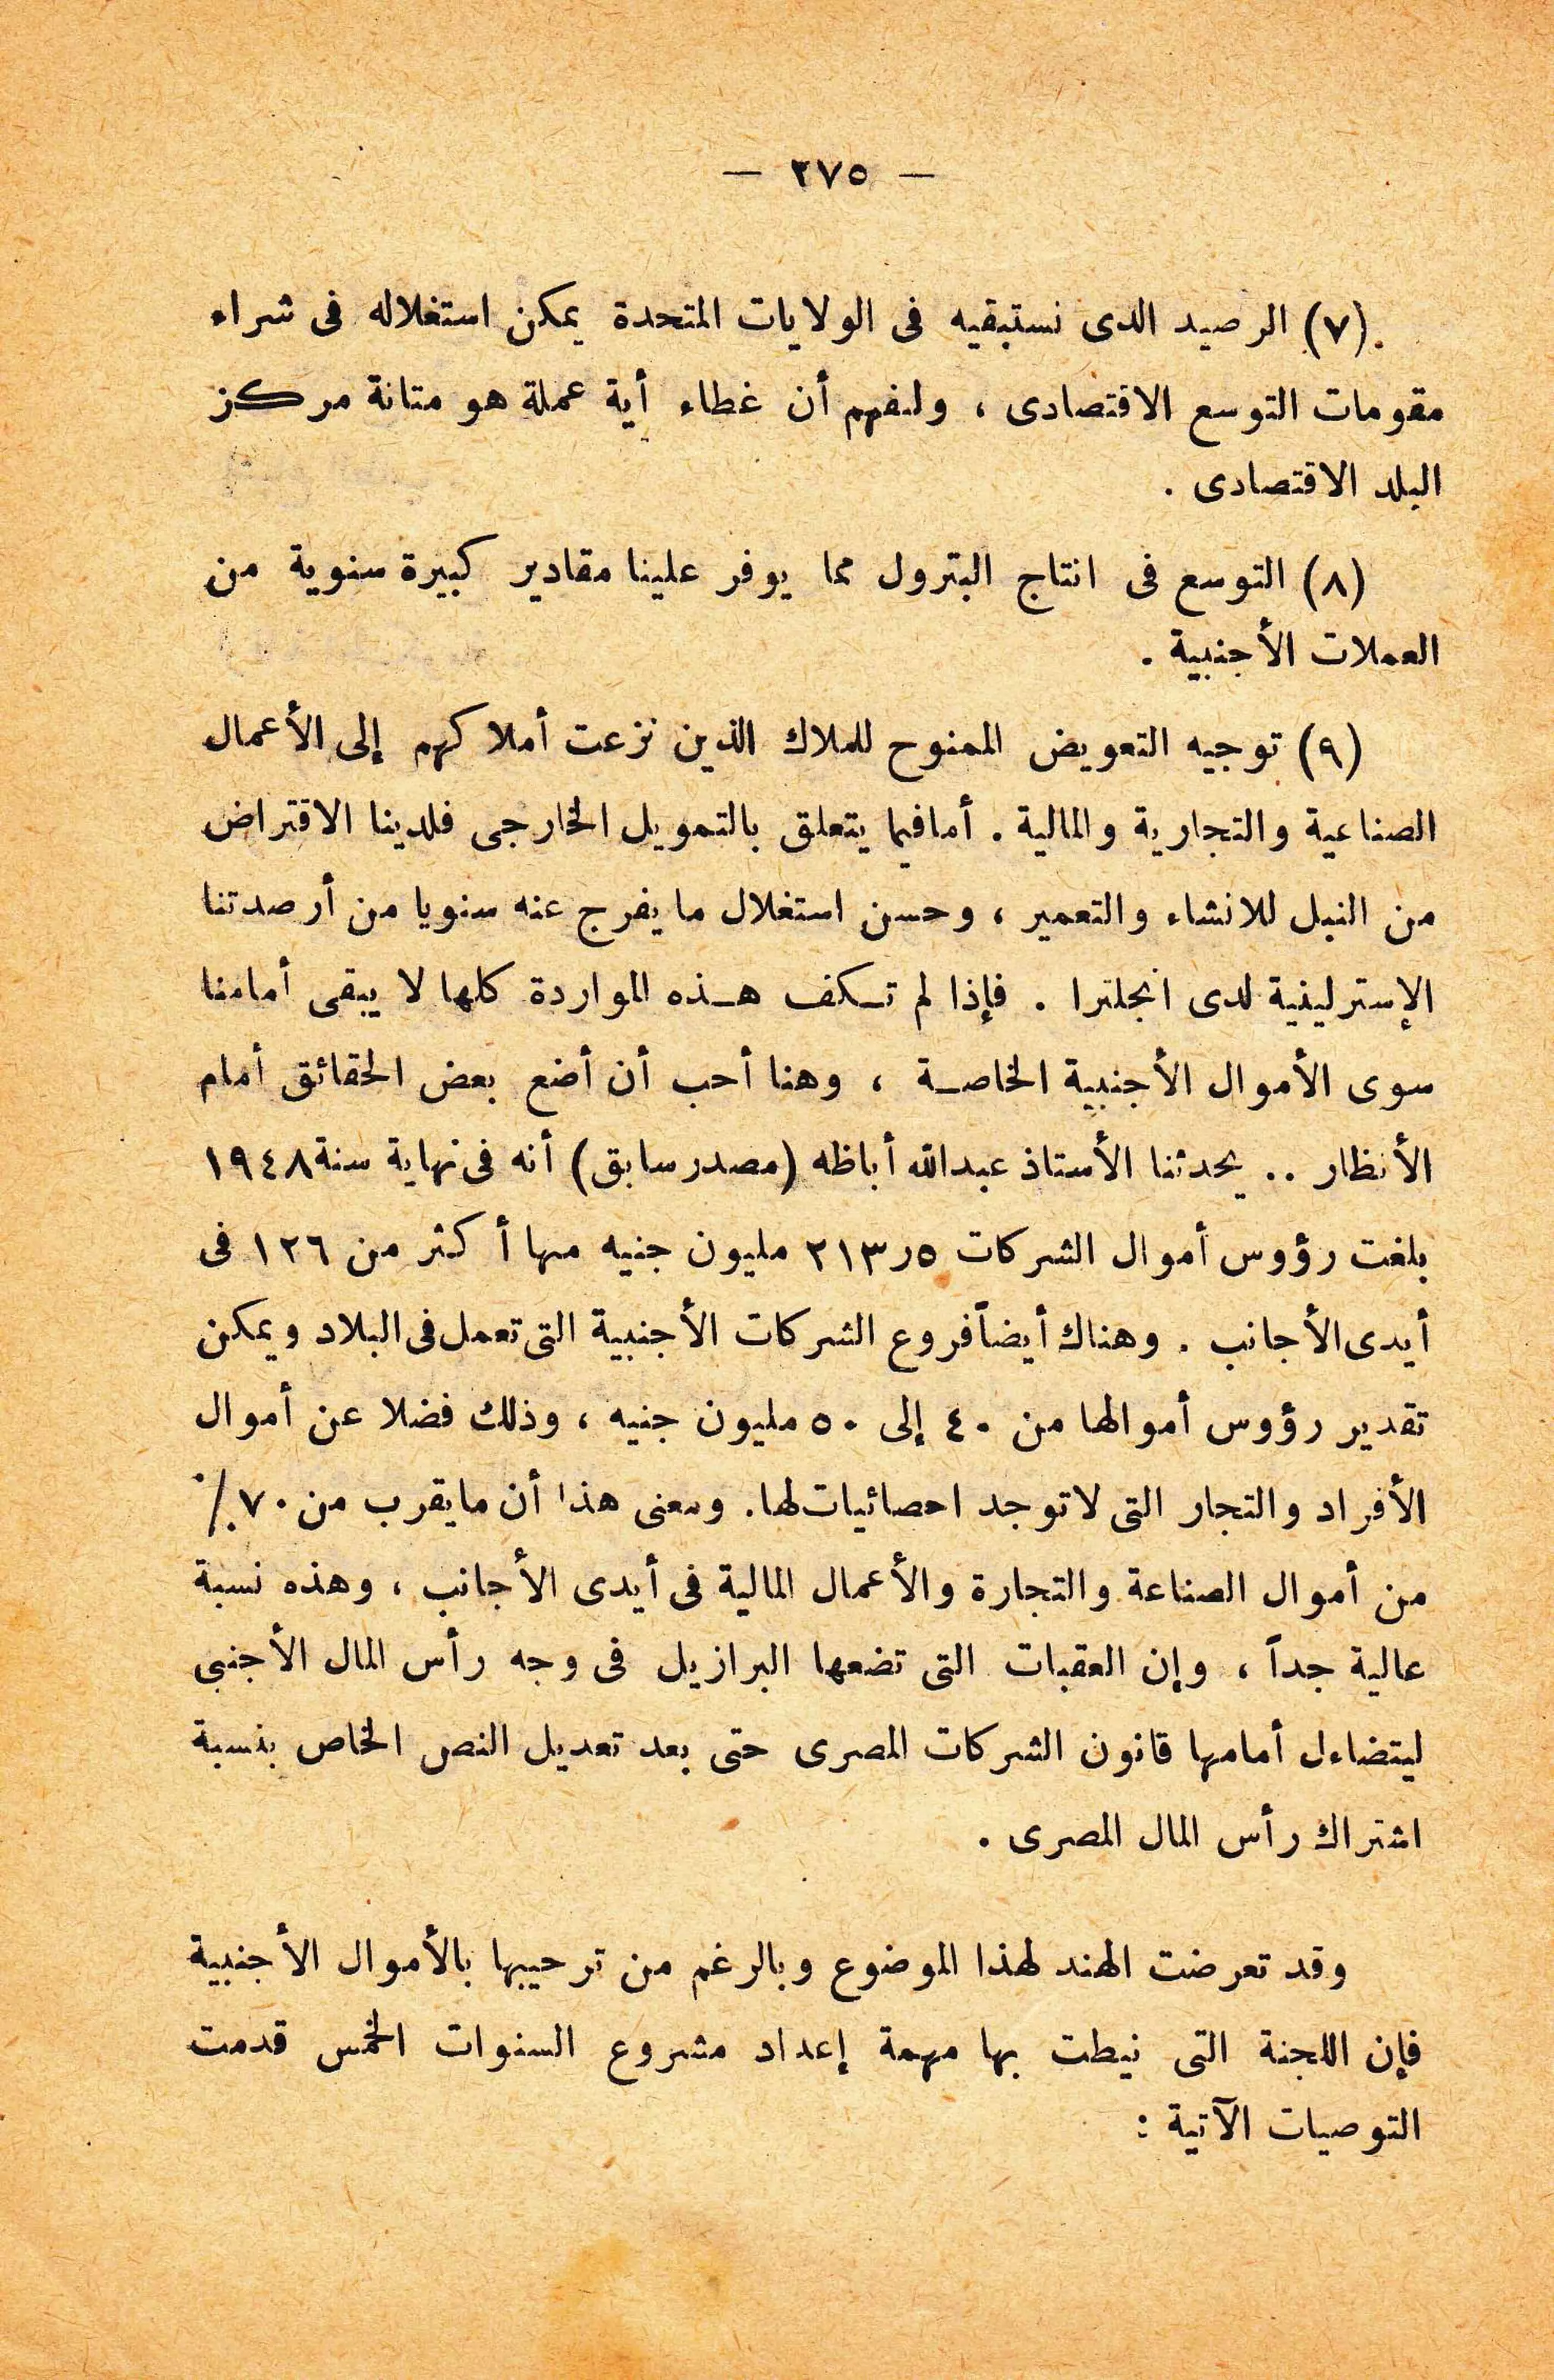 — ٢٧٥ —
(٧) الرصيد الذى نستبقيه فى الولايات المتحدة يمكن استغلاله فى شراء
مقومات التوسع الاقتصادى ، ولنفهم أن غطاء أية عملة هو متانة مركز
البلد الاقتصادى .
(٨) التوسع فى انتاج البترول مما يوفر علينا مقادير كبيرة سنوية من
العملات الأجنبية .
(٩) توجيه التعويض الممنوح للملاك الذين نزعت أملاكهم إلى الأعمال
الصناعية والتجارية والمالية . أما فيما يتعلق بالتمويل الخارجى فلدينا الاقتراض
من البنك للانشاء والتعمير ، وحسن استغلال ما يفرج عنه سنويا من أرصدتنا
الإسترلينية لدى انجلترا . فإذا لم تكف هذه المواردة كلها لا يبقى أمامنا
سوى الأموال الأجنبية الخاصة ، وهنا أحب أن أضع بعض الحقائق أمام
الأنظار .. يحدثنا الأستاذ عبدالله أباظه (مصدر سابق) أنه فى نهاية سنة ١٩٤٨
بلغت رؤوس أموال الشركات ٢١٣٫٥ مليون جنيه منها أكثر من ١٢٦ فى
أيدى الأجانب . وهناك أيضاً فروع الشركات الأجنبية التى تعمل فى البلاد ويمكن
تقدير رؤوس أموالها من ٤٠ إلى ٥٠ مليون جنيه ، وذلك فضلا عن أموال
الأفراد والتجار التى لا توجد احصائيات لها. ومعنى هذا أن ما يقرب من ٧٠٪
من أموال الصناعة والتجارة والأعمال المالية فى أيدى الأجانب ، وهذه نسبة
عالية جداً ، وإن العقبات التى تضعها البرازيل فى وجه رأس المال الأجنبى
ليتضاءل أمامها قانون الشركات المصرى حتى بعد تعديل النص الخاص بنسبة
اشتراك رأس المال المصرى .
وقد تعرضت الهند لهذا الموضوع وبالرغم من ترحيبها بالأموال الأجنبية
فإن اللجنة التى نيطت بها مهمة إعداد مشروع السنوات الخمس قدمت
التوصيات الآتية :